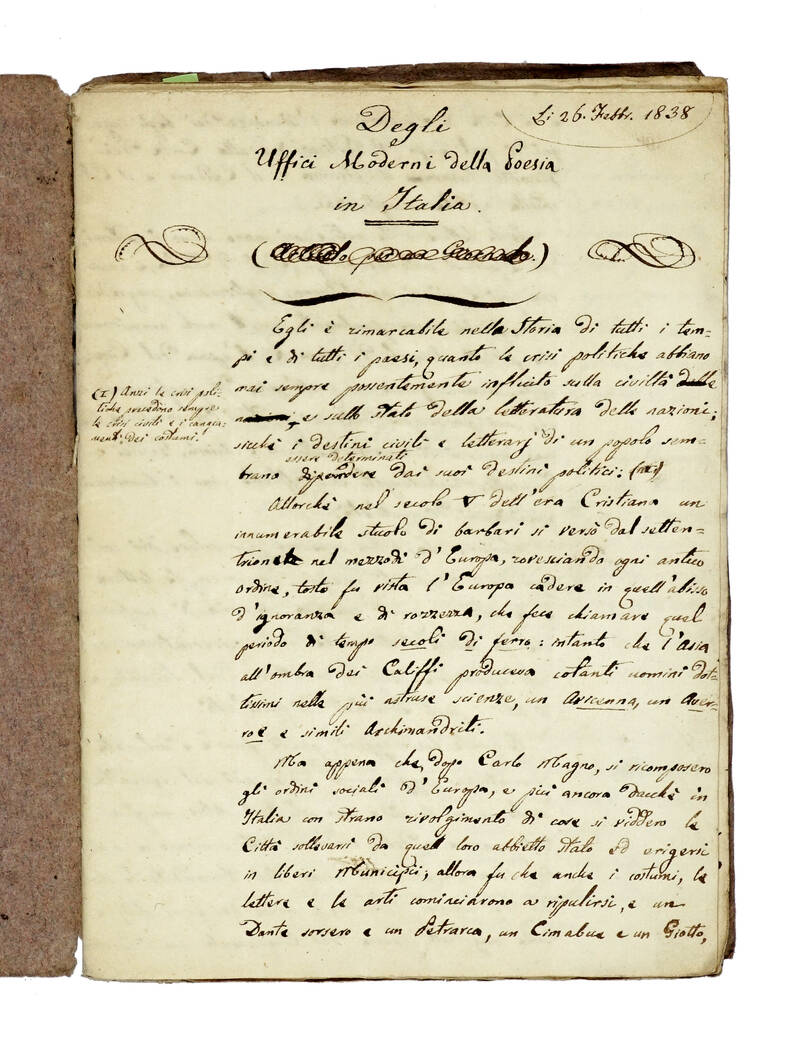 Li 26. Febbr. 1838
Degli
Uffici Moderni della Poesia
in Italia.
Egli è rimarcabile nella Storia di tutti i tem-
pi e di tutti i paesi, quanto le crisi politiche abbiano
mai sempre possentemente influito sulla civiltà delle
nazioni, e sullo stato della letteratura delle nazioni;
sicchè i destini civili e letterarj di un popolo sem-
essere determinati
brano dipendere dai suoi destini politici:
(1) Anzi le crisi poli-
tiche precedono sempre
le crisi civili e i cangia-
menti dei costumi.
Allorchè nel secolo V dell'era Cristiana un
innumerabile stuolo di barbari si versò dal setten-
trione nel mezzodì d'Europa, rovesciando ogni antico
ordine, tosto fu vista l'Europa cadere in quell'abisso
d'ignoranza e di rozzezza, che fece chiamare quel
periodo di tempo secoli di ferro: intanto che l'Asia
all'ombra dei Califfi produceva cotanti uomini dot-
tissini nelle più astruse scienze, un Avicenna, un Aver-
roe e simili Archimandriti.
Ma appena che, dopo Carlo Magno, si ricomposero
gli ordini sociali d'Europa, e più ancora dacchè in
Italia con strano rivolgimento di cose si viddero le
Città sollevarsi da quell loro abbietto stato ed erigersi
in liberi Municipii; allora fu che anche i costumi, le
lettere e le arti cominciarono a ripulirsi, e un
Dante sorsero e un Petrarca, un Cimabue e un Giotto,